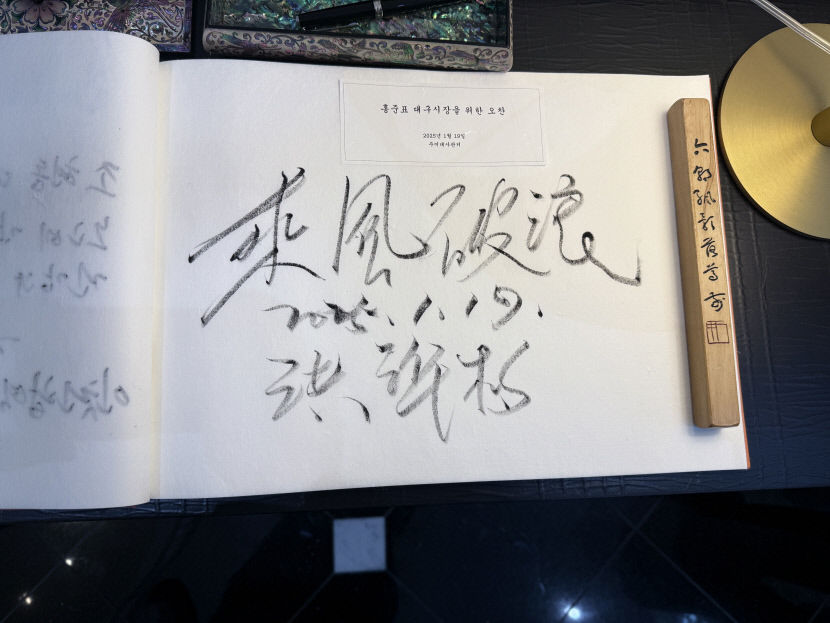 홍준표 대구시장을 위한 오찬
2025년 1월 19일
주미대사관저
乘風破浪
2025. 1. 19.
洪準杓
六朝帆影落尊前